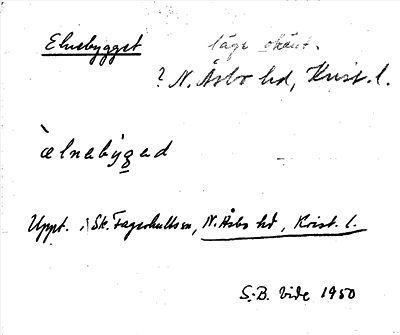 Elnebygget
läge okänt.
? N. Åsbo hd, Krist. l.
ælnabýgad
Uppt. i Sk. Fagerhults sn, N. Åsbo hd, Krist. l.
S.-B. Vide 1950